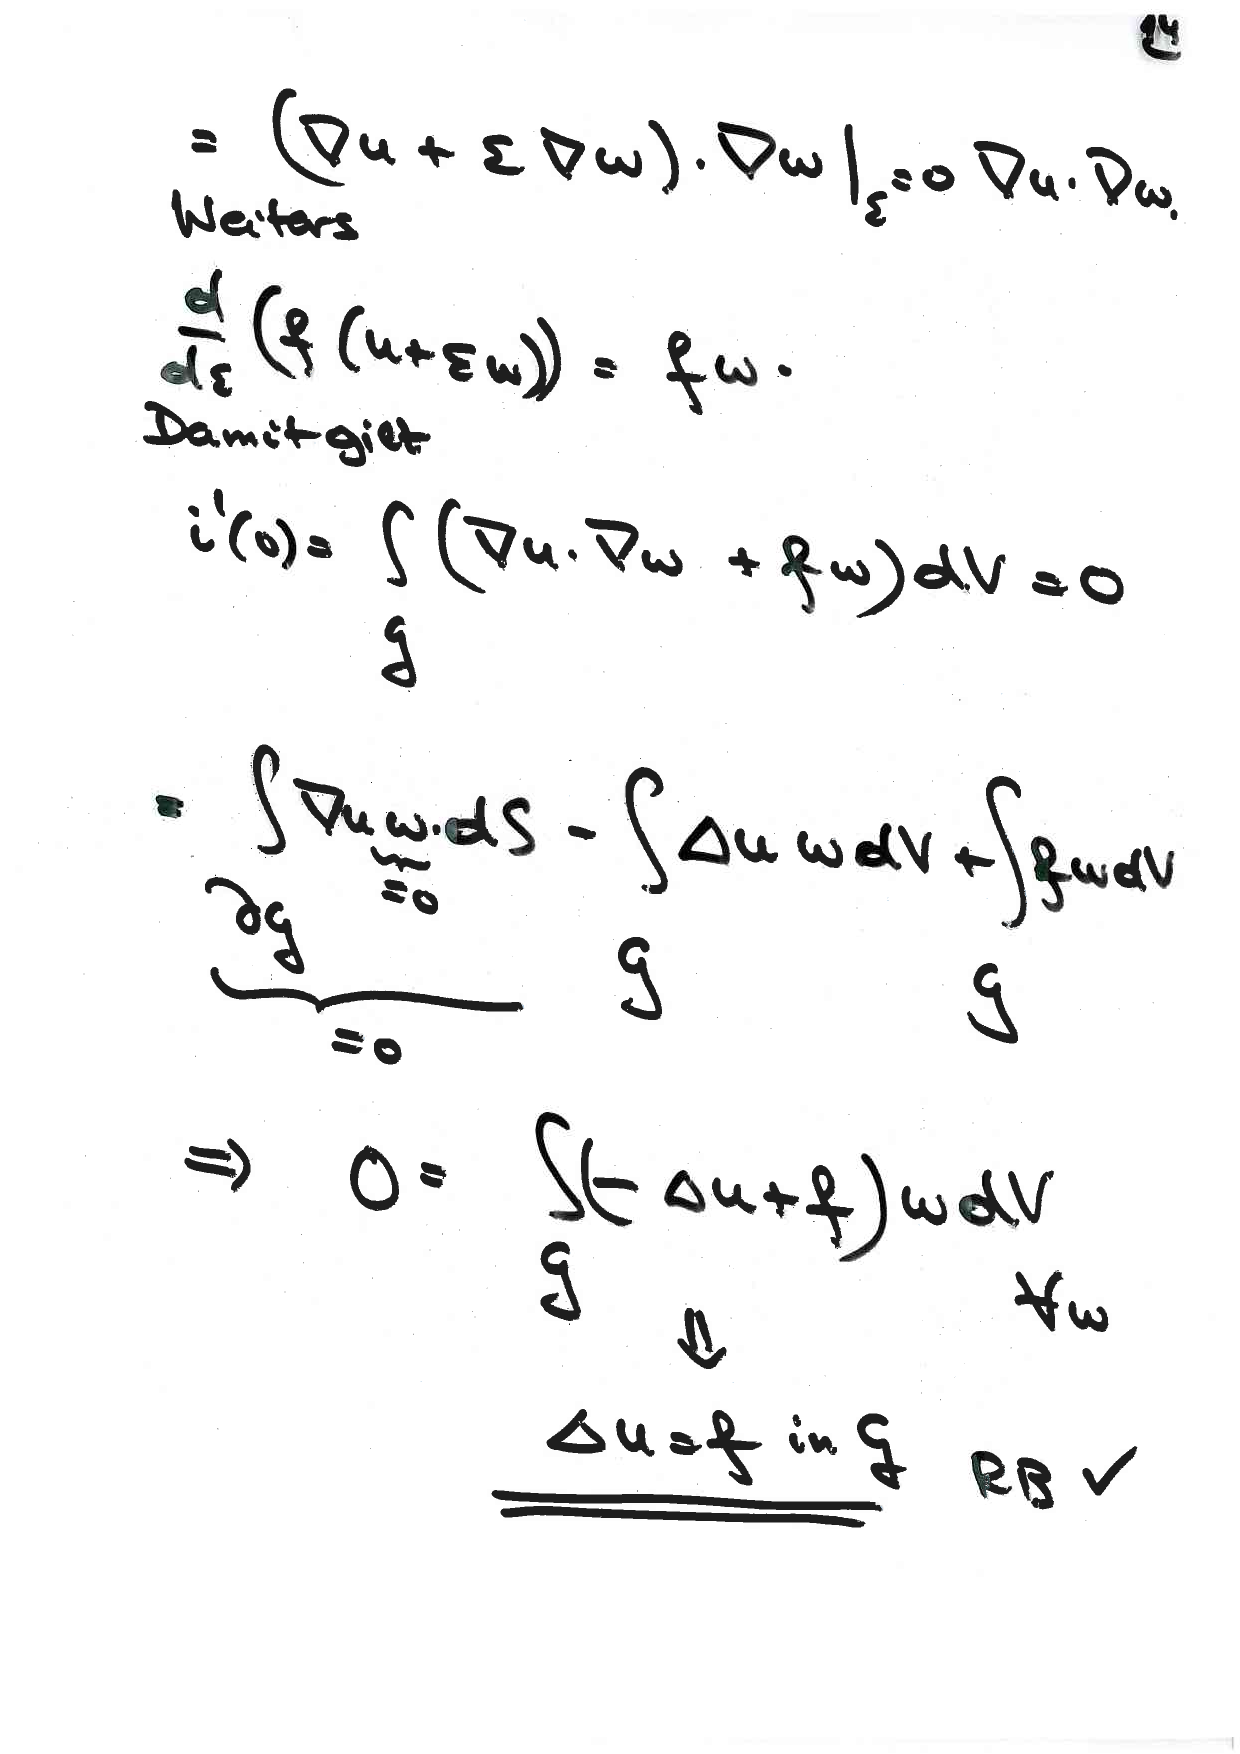 14
= (∇u + ε∇w) · ∇w |ε=0 ∇u · ∇w.
Weiters
d/dε (f (u+εw)) = f w .
Damit gilt
i'(0) = ∫ (∇u · ∇w + f w) dV = 0
G
= ∫ ∇u w · dS - ∫ Δu w dV + ∫ f w dV
=0
∂G G G
=0
⇒ 0 = ∫ (- Δu + f) w dV
G ∀w
⇓
Δu = f in G RB ✓